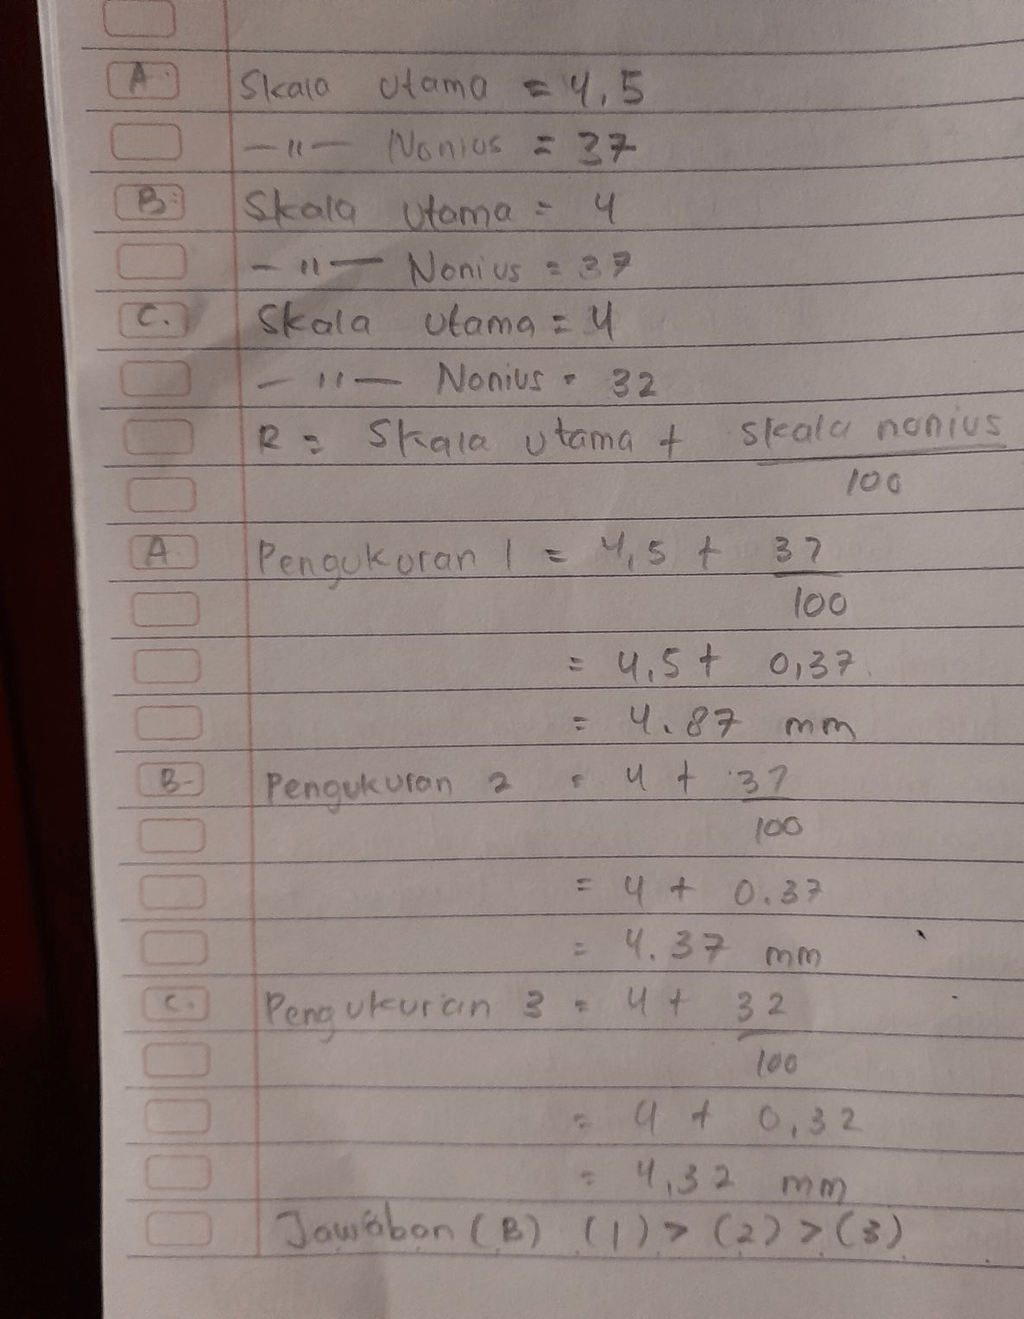 A. Skala Utama = 4,5
—"— Nonius = 37
B. Skala Utama = 4
—"— Nonius = 37
C. Skala Utama = 4
—"— Nonius = 32
R = Skala utama + skala nonius
100
A Pengukuran 1 = 4,5 + 37
100
= 4,5 + 0,37
= 4.87 mm
B. Pengukuran 2 = 4 + 37
100
= 4 + 0.37
= 4.37 mm
C. Pengukuran 3 = 4 + 32
100
= 4 + 0,32
= 4,32 mm
Jawaban (B) (1) > (2) > (3)